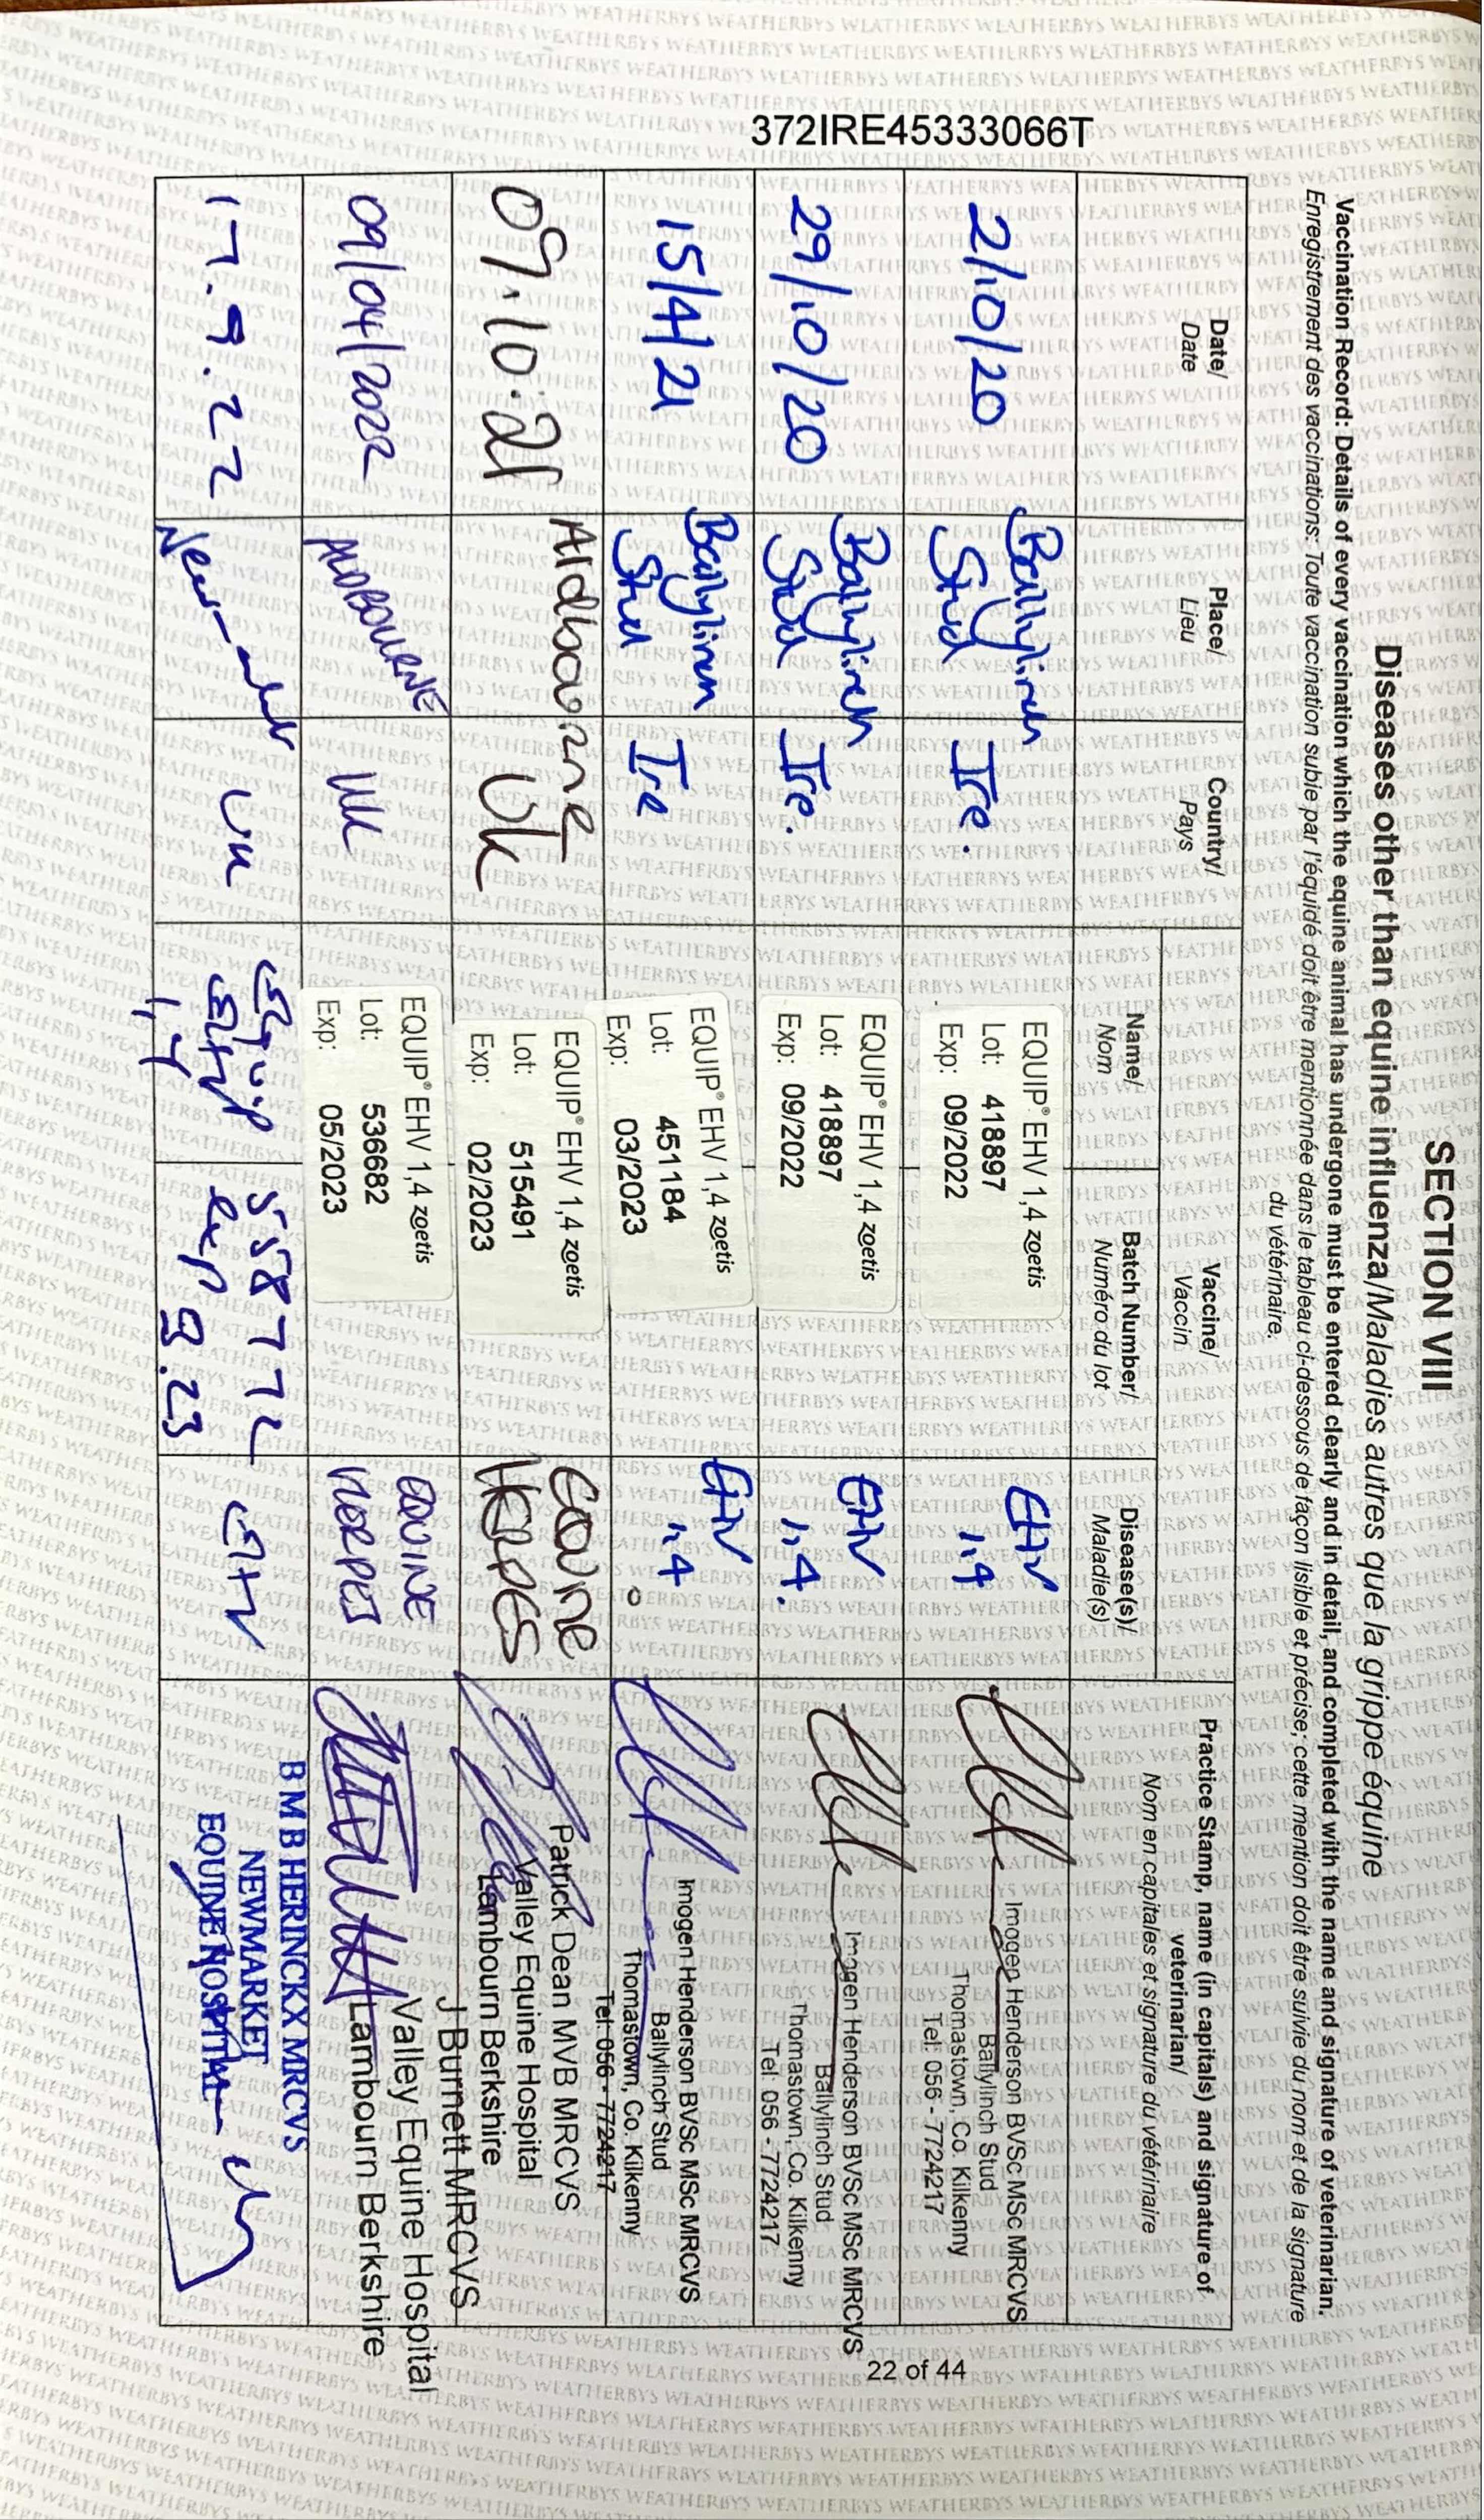 372IRE45333066T
SECTION VIII
Diseases other than equine influenza/Maladies autres que la grippe équine
Vaccination Record: Details of every vaccination which the equine animal has undergone must be entered clearly and in detail, and completed with the name and signature of veterinarian.
Enregistrement des vaccinations: Toute vaccination subie par l'équidé doit être mentionnée dans le tableau ci-dessous de façon lisible et précise; cette mention doit être suivie du nom et de la signature
du vétérinaire.
Date/
Date
Place/
Lieu
Country/
Pays
Vaccine/
Vaccin
Name/
Nom
Batch Number/
Numéro du lot
Disease(s)/
Maladie(s)
Practice Stamp, name (in capitals) and signature of
veterinarian/
Nom en capitales et signature du vétérinaire
2/10/20
Ballylinch
Stud
Ire.
EQUIP® EHV 1,4 zoetis
Lot: 418897
Exp: 09/2022
EHV
1,4
Imogen Henderson BVSc MSc MRCVS
Ballylinch Stud
Thomastown, Co. Kilkenny
Tel: 056 - 7724217
29/10/20
Ballylinch
Stud
Ire.
EQUIP® EHV 1,4 zoetis
Lot: 418897
Exp: 09/2022
EHV
1,4.
Imogen Henderson BVSc MSc MRCVS
Ballylinch Stud
Thomastown, Co. Kilkenny
Tel: 056 - 7724217
15/4/21
Ballylinch
Stud
Ire
EQUIP® EHV 1,4 zoetis
Lot: 451184
Exp: 03/2023
EHV
1,4
Imogen Henderson BVSc MSc MRCVS
Ballylinch Stud
Thomastown, Co. Kilkenny
Tel: 056 - 7724217
09.10.21
Aldbourne
UK
EQUIP® EHV 1,4 zoetis
Lot: 515491
Exp: 02/2023
Equine
Herpes
Patrick Dean MVB MRCVS
Valley Equine Hospital
Lambourn Berkshire
09/04/2022
ALDBOURNE
UK
EQUIP® EHV 1,4 zoetis
Lot: 536682
Exp: 05/2023
EQUINE
HERPES
J Burnett MRCVS
Valley Equine Hospital
Lambourn Berkshire
17.9.22
Newmarket
UK
Equip
EHV
1,4
558772
exp 9.23
EHV
B M B HERINCKX MRCVS
NEWMARKET
EQUINE HOSPITAL
22 of 44